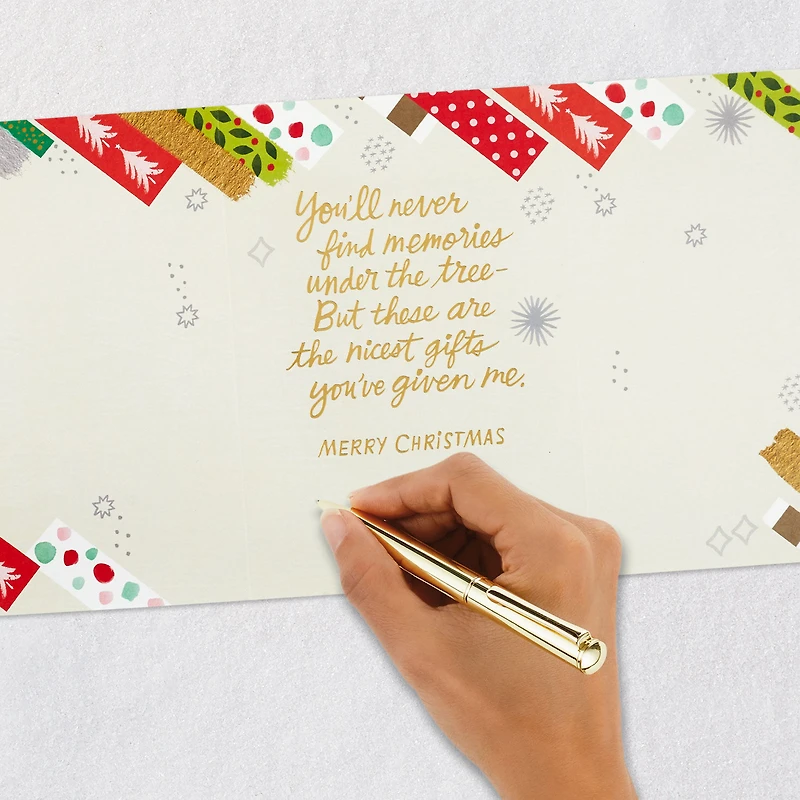 You'll never
find memories
under the tree–
But these are
the nicest gifts
you've given me.
MERRY CHRISTMAS